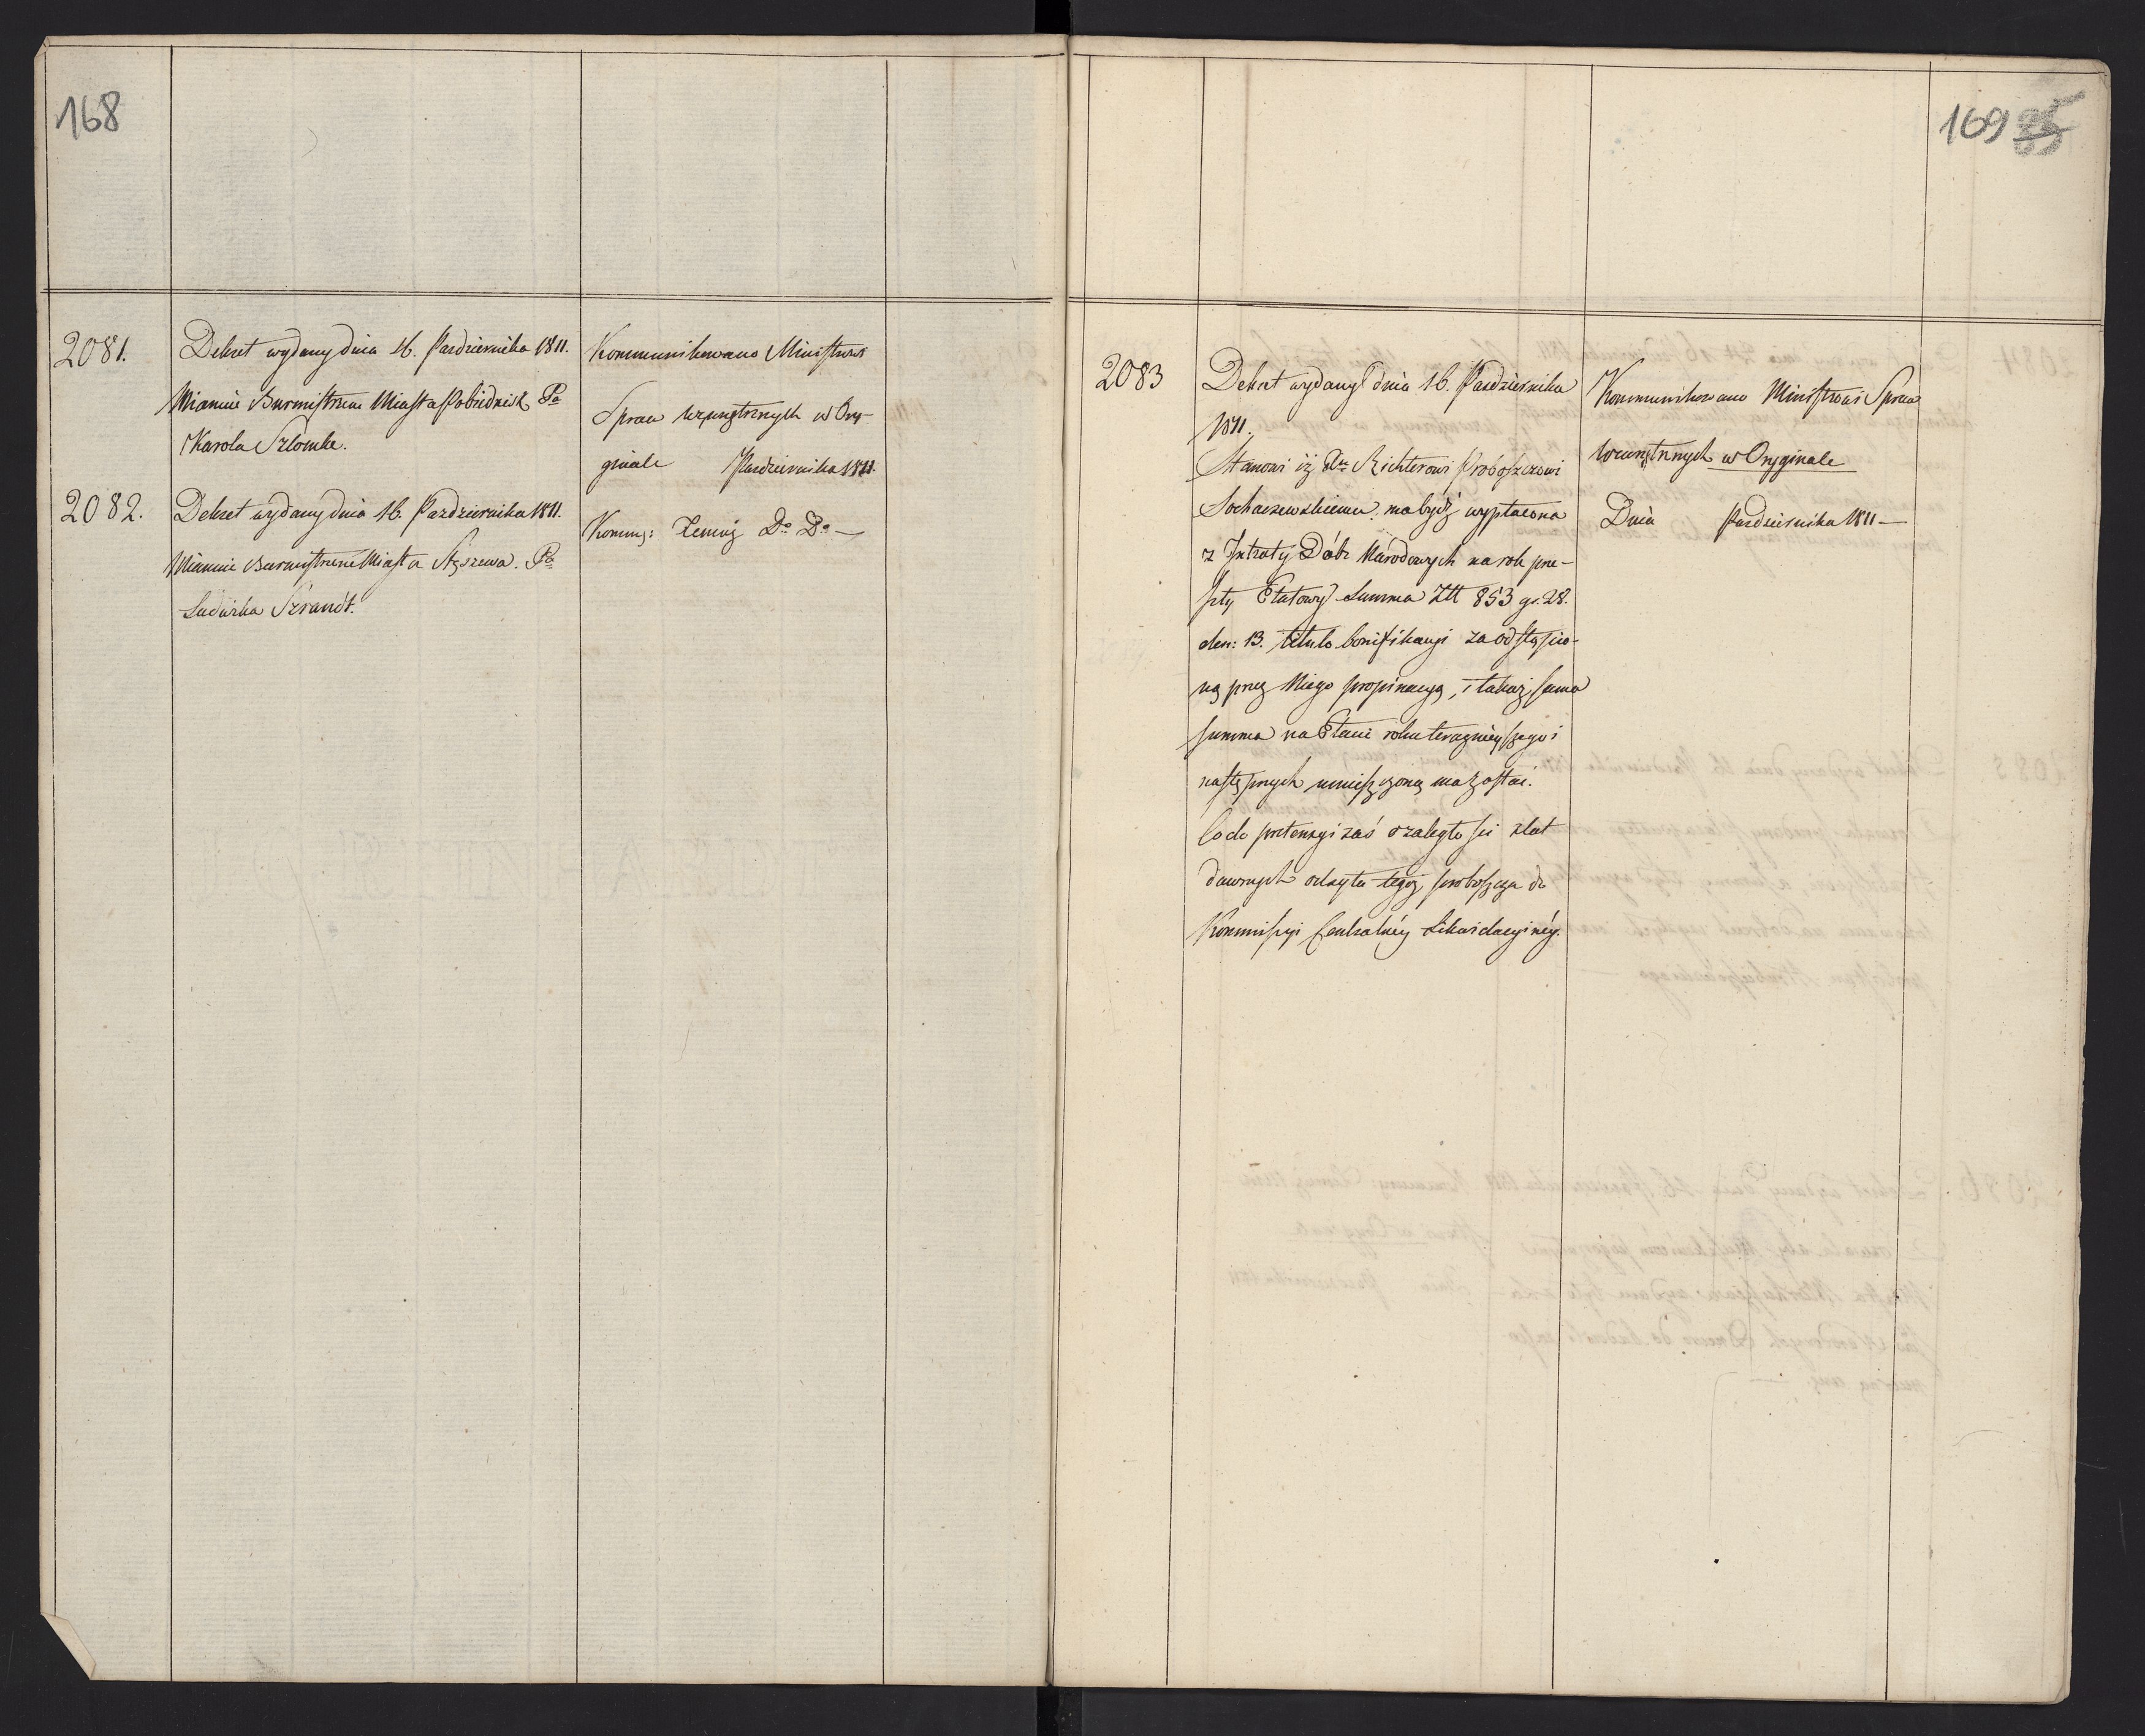 168
2081.
Dekret wydany dnia 16. Pazdziernika 1811.
Mianuie Burmistrzem Miasta Pobiedzisk Pa
Karola Szlomke.
Kommunikowano Ministrowi
Spraw Wewnętrznych w Ory-
ginale Pazdziernika 1811.
2082.
Dekret wydany dnia 16. Pazdziernika 1811.
Mianuie Burmistrzem Miasta Stęszewa. Pa
Ludwika Szrandt.
Kommu: Temuż Do Do —
169
2083
Dekret wydany dnia 16. Pazdziernika
1811.
Stanowi iż Richterowi Proboszczowi
Sochaczewskiemu ma bydź wypłacona
z Intraty Dóbr Narodowych na rok prze-
szły Etatowy Summa Złł 853 gr. 28.
den: 13. titulo bonifikacyi za odstąpio-
ną przez Niego propinacyą, i takaż sama
summa na Etacie roku teraznieyszego i
następnych umieszczoną ma zostać.
Co do pretensyi zaś o zaległości z lat
dawnych odsyła tegoż proboszcza do
Kommissyi Centralnéy Likwidacyinéy.
Kommunikowano Ministrowi Spraw
Wewnętrznych w Oryginale
Dnia Pazdziernika 1811 —